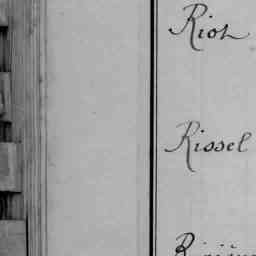 Rioh
Rissel